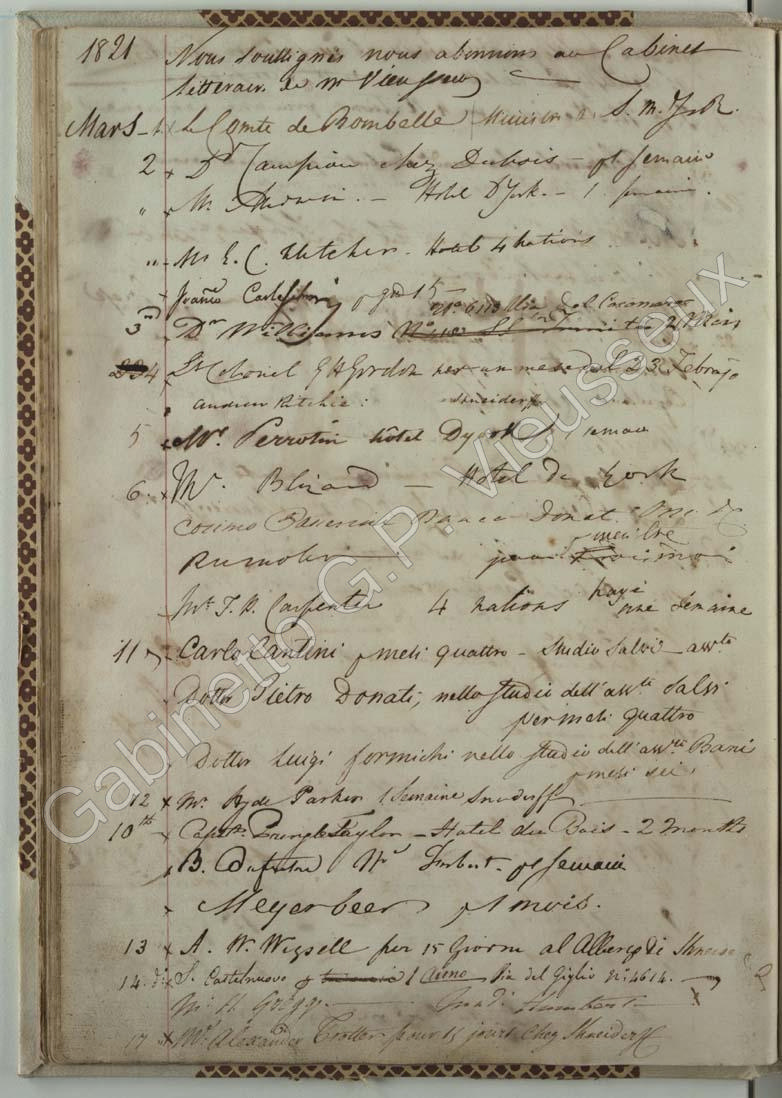 1821 Nous soussignés nous abonnons au Cabinet
litteraire de Mr Vieusseux
Mars 1 x Le Comte de Bombelle Ministre S. M.
2 x Dr Campion chez Dubois - semaine
" x Mr - Hotel D'York - 1
" - Mr E. C. Fletcher - Hotel 4 nations
15 -
No 6113 Via del Cocomero
3rd Dr Williams No 2 Mois
4 Lt Colonel G H Gordon per un mese dal 23 Febrajo
Andrew Ritchie : Shneiderf
5 x Mr Perrotin hôtel Dyork 1 semaine
6. x Mr Blizard - Hotel de York
Cosimo
Rumohr pour
Mr T. D. Carpenter 4 nations payé une Semaine
11 Carlo Cantini p mesi quattro - Studio Salvi - avvto
Dottor Pietro Donati, nello studio dell'avvto Salvi
per mesi quattro
Dottor Luigi formichi nello studio dell'avvto Bani
p mesi sei
12 x Mr Hyde Parker 1 Semaine Snederff
10th x Captn Pringle Taylor - Hotel du Bois - 2 months
x B. Mr Imbert. p 1 Semaine
x Meyerbeer p 1 mois.
13 x A. W. Wigsell per 15 Giorni al Albergo di
14. do x S. Castelnuovo p 1 Anno Via del Giglio No 4614.
Mr H
17 x Mr Alexander Trotter pour 15 jours chez Shneiderff
Gabinetto G.P. Vieusseux